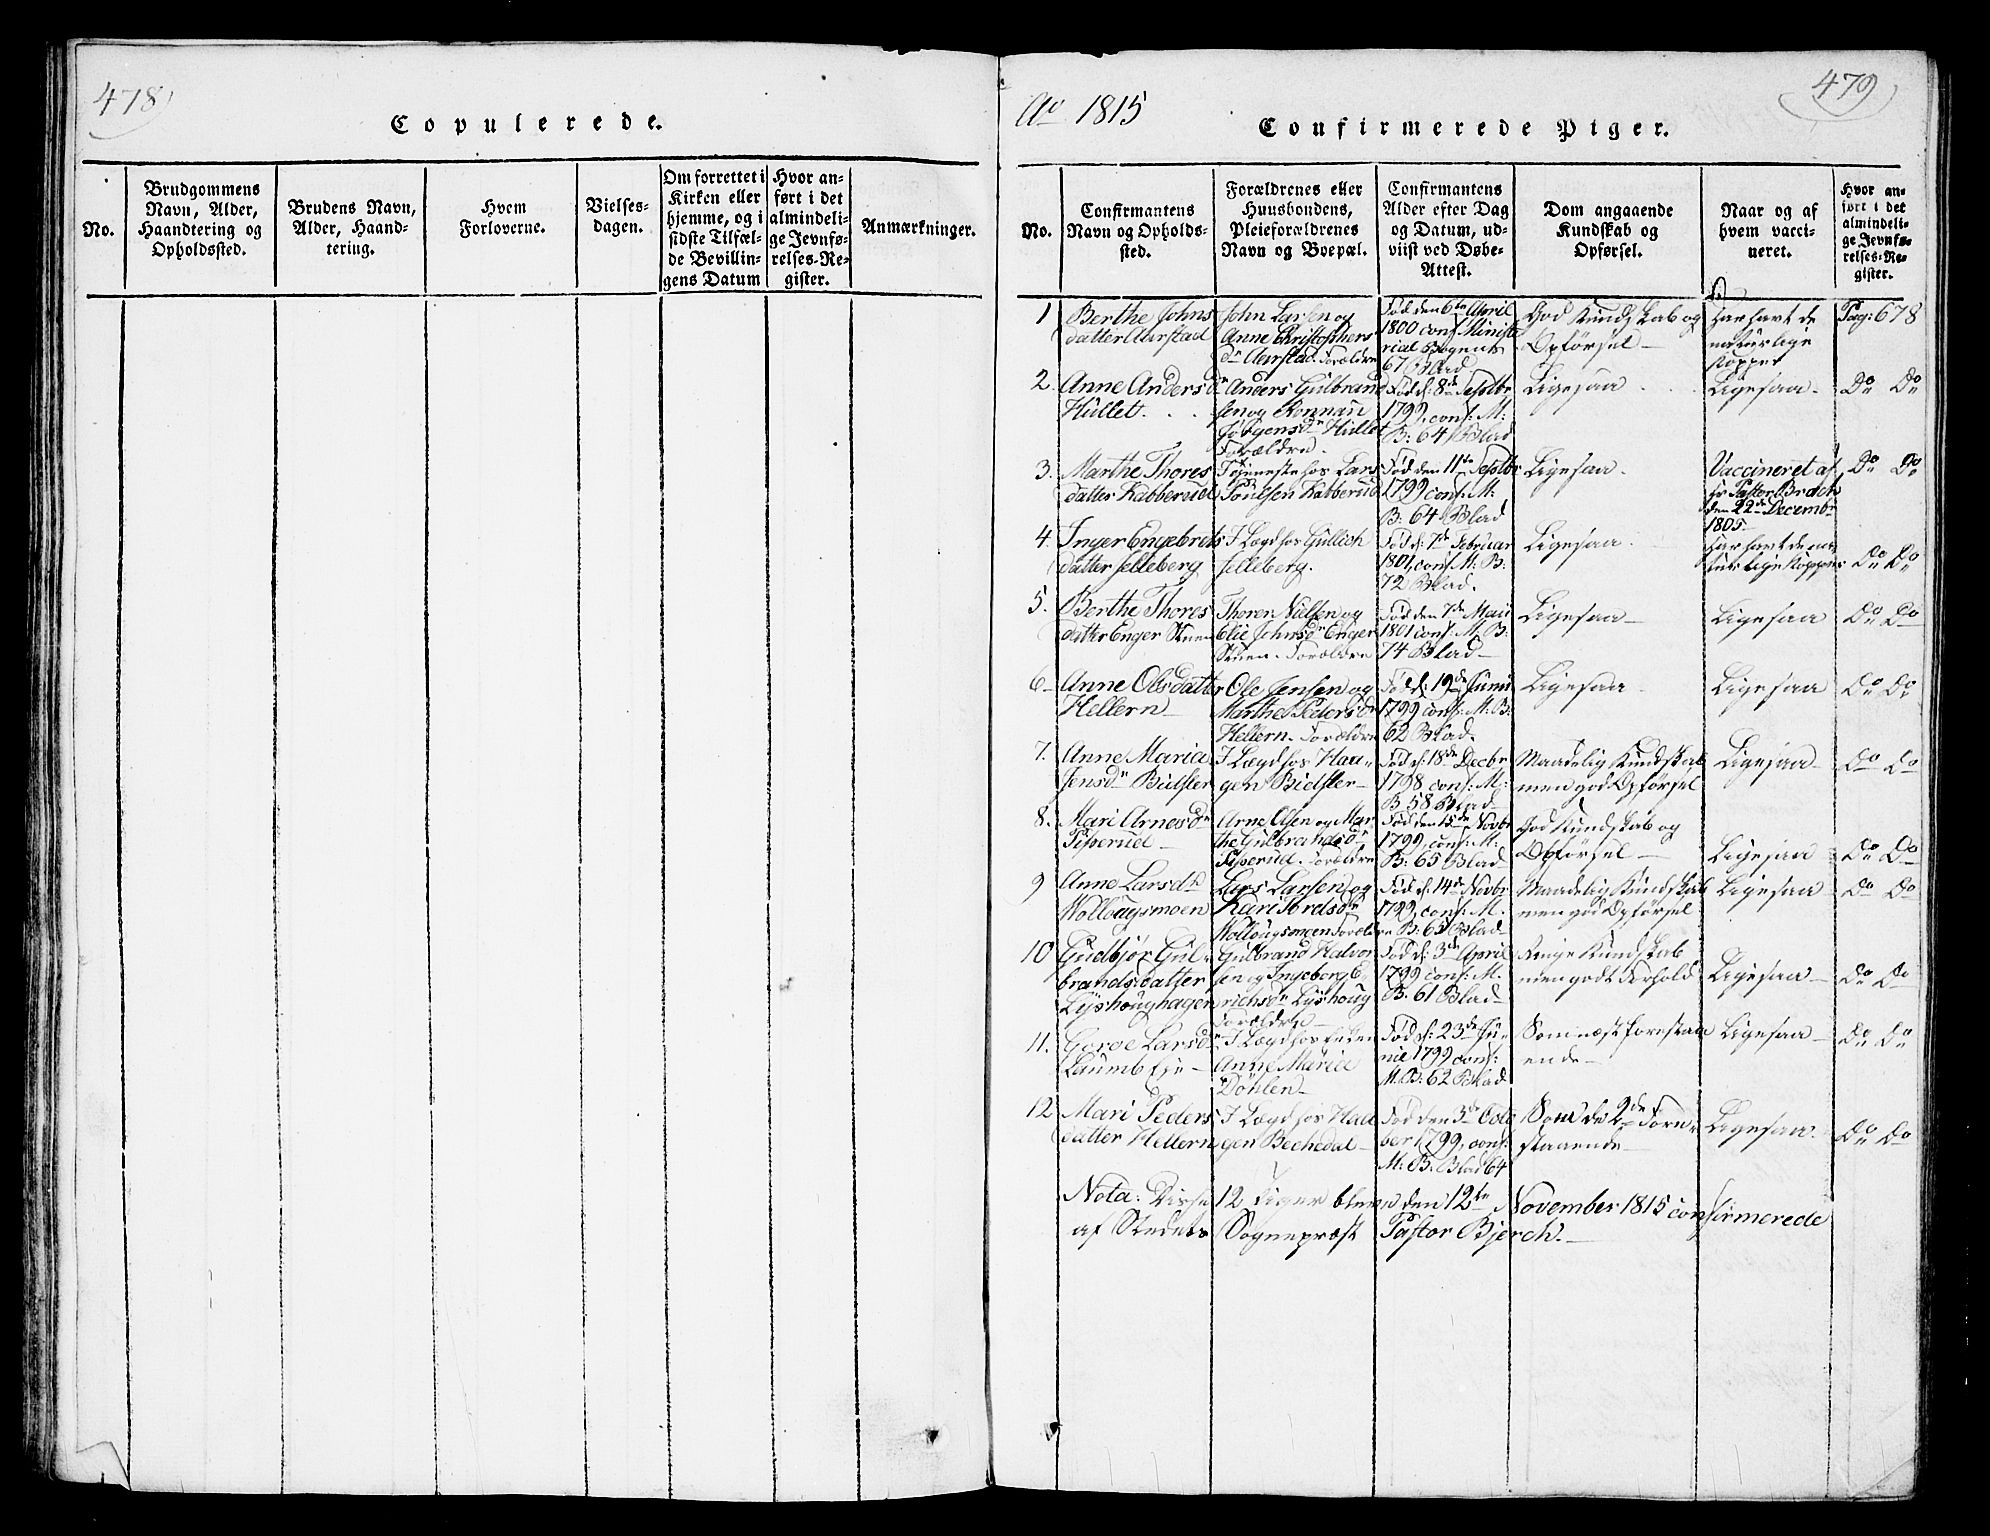 478
Copulerede.
No.
Brudgommens
Navn, Alder,
Haandtering og
Opholdssted.
Brudens Navn,
Alder, Haand-
tering.
Hvem
Forloverne.
Vielses-
dagen.
Om forrettet i
Kirken eller
hjemme, og i
sidste Tilfæl-
de Bevillin-
gens Datum
Hvor an-
ført i det
almindeli-
ge Jevnfø-
relses-Re-
gister.
Anmærkninger.
Ao 1815
479
Confirmerede Piger.
No.
Confirmantens
Navn og Opholds-
sted.
Forældrenes eller
Huusbondens,
Pleieforældrenes
Navn og Boepæl.
Confirmantens
Alder efter Dag
og Datum, ud-
viist ved Døbe-
Attest.
Dom angaaende
Kundskab og
Opførsel.
Naar og af
hvem vacci-
neret.
Hvor an-
ført i det
almindeli-
ge Jevnfø-
relses-Re-
gister.
1
Berthe Johns
datter Aarstad
John Larsen og
Anne Christophers
dr Aarstad. Forældre
Fød den 6te April
1800 conf Ministe
rial Bogens
67 Blad
God Kundskab og
Opførsel
Har havt de
naturlige
Kopper
Pag: 678
2.
Anne Anders dr
Hullet.
Anders Gulbrand
sen og Ronnau
Jørgensdr Hullet
Forældre.
Fød d: 8de Septbr
1799, conf: M:
B: 64 Blad
Ligesaa
Ligesaa
Do Do
3.
Marthe Thores
datter Kabberud
Tjeneste hos Lars
Poulsen Kabberud
Fød den 11te Septbr
1799 conf: M:
B: 64 Blad
Ligesaa.
Vaccineret af
Hr Pastor Broch
den 22de Decembr
1805
Do Do
4.
Inger Engebrets
datter Selleberg
I Lægd hos Gullich
Selleberg.
Fød d: 7de Februar
1801, conf: M: B:
72 Blad.
Ligesaa.
Har havt de na
turlige Kopper
Do Do
5.
Berthe Thores
datter Enger Stuen
Thorer Nielsen og
Elie Johnsdr Enger
Stuen. Forældre
Fød den 7de Maii
1801 conf: M: B:
74 Blad
Ligesaa
Ligesaa
Do Do
6
Anne Olsdatter
Hellern
Ole Jensen og
Marthe Pedersdr
Hellern. Forældre
Fød d: 19de Junii
1799 conf: M: B:
62 Blad.
Ligesaa
Ligesaa
Do Do
7.
Anne Maria
Jensdr Bidsler
I Lægd hos Hau-
gen Bidsler
Fød d: 18de Decbr
1798 conf: M:
B 58 Blad
Maadelig Kundskab
men god Opførsel
Ligesaa
Do Do
8.
Mari Arnesdr
Piperud
Arne Olsen og Mar
the Gulbrandsdr
Piperud. Forældre
Fød den 15de Novbr
1799, conf: M:
B: 65 Blad
God Kundskab og
Opførsel
Ligesaa
Do Do
9
Anne Larsdr
Wollougsmoen
Lars Larsen og
Kari Tordsdr
Wollougsmoen Forældre
Fød d: 14de Novbr
1799, conf: M.
B: 65 Blad
Maadelig Kundskab
men god Opførsel
Ligesaa
Do Do
10
Gudbjør Gul-
brands:datter
Lyshoughagen
Gulbrand Halvor
sen og Ingeborg E
richsdr Lyshoug
Forældre
Fød d: 3de April
1799 conf: M.
B: 61 Blad
Ringe Kundskab
men godt Forhold
Ligesaa
Do Do
11.
Goroe Larsdr
Laumb Eje
I Lægd hos Enken
Anne Maria
Døhlen
Fød d: 23de Ju-
nie 1799 conf:
M. B: 62 Blad
Som næst forestaa
ende
Ligesaa
Do Do
12
Mari Peders
datter Hellern
I Lægd hos Hau
gen Bechedal
Fød den 3de Octo
ber 1799, conf:
M: B. Blad 64
Som de 2de Forn
staaende
Ligesaa.
Do Do
Nota: Disse 12 Piger bleve den 12te November 1815 confirmerede
af Stedets Sognepræst Pastor Bjerch.